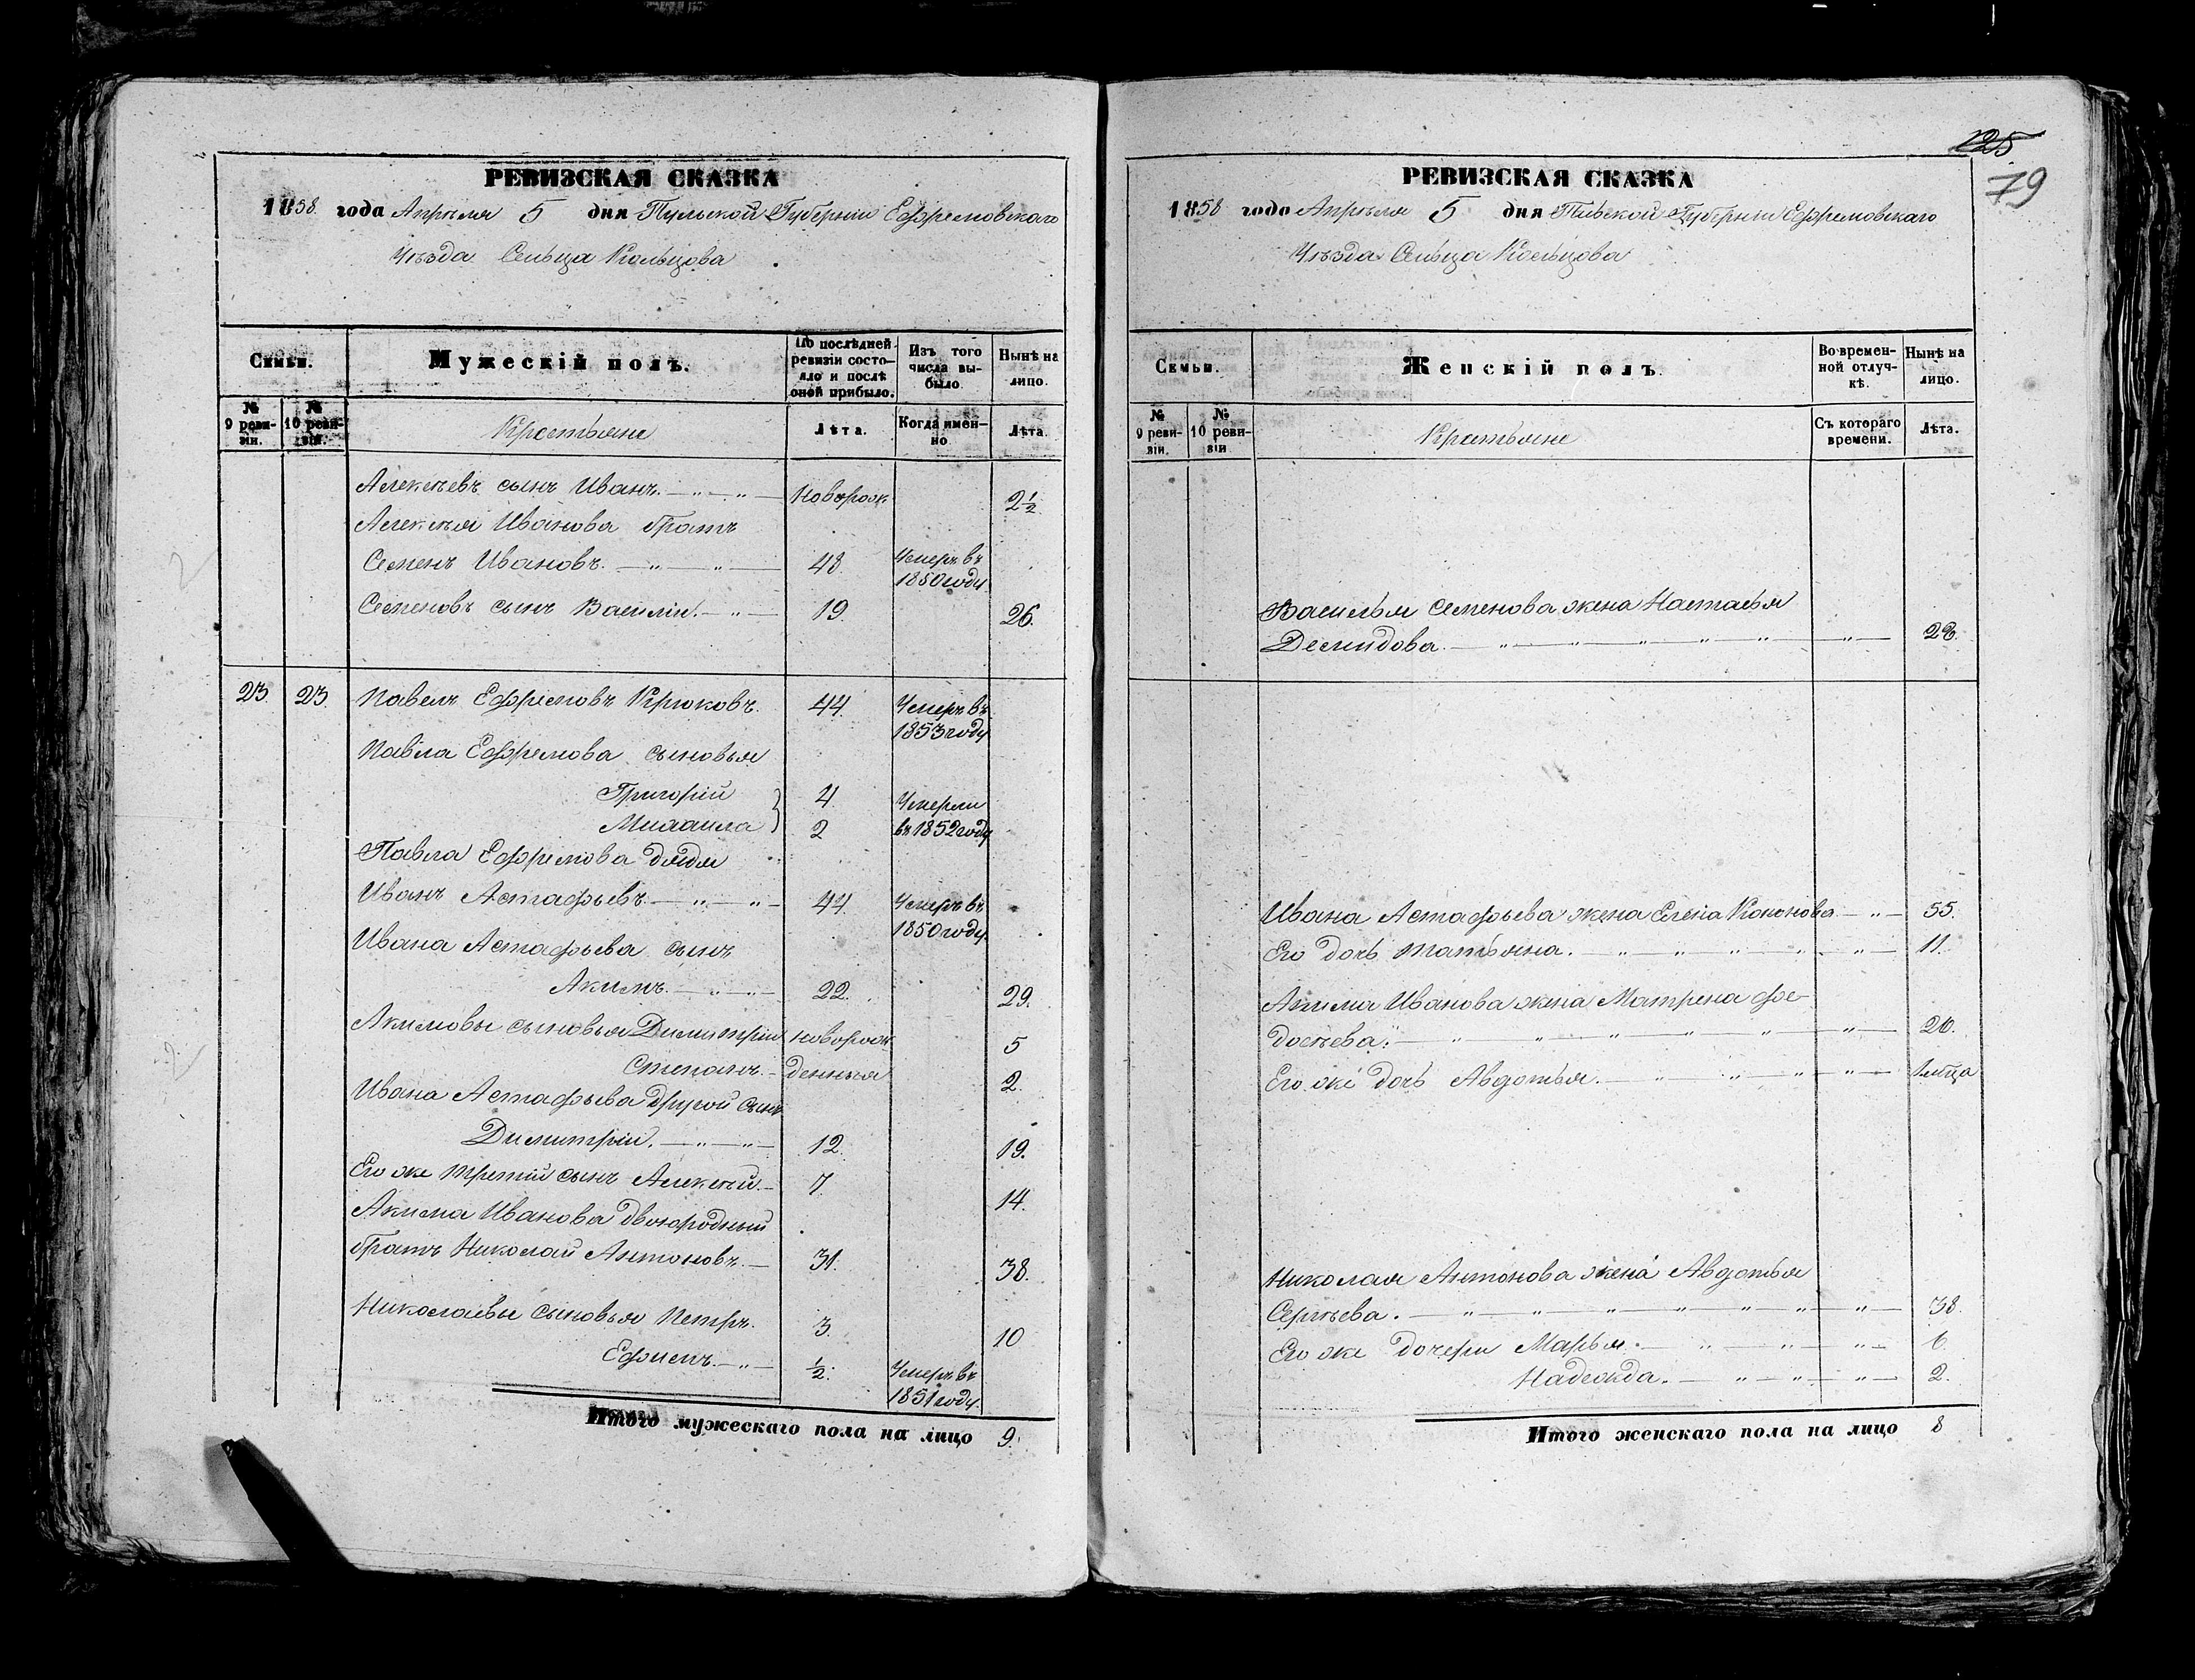 РЕВИЗСКАЯ СКАЗКА
1858 года Апрѣля 5 дня Тульской Губерніи Ефремовскаго
Уѣзда Сельца Кольцова
Семьи.
Мужескій полъ.
По послѣдней ревизіи состояло и послѣ оной прибыло.
Изъ того числа выбыло.
Нынѣ на лицо.
№ 9 ревизіи.
№ 10 ревизіи.
Крестьяне
Лѣта.
Когда именно
Лѣта.
Алексѣевъ сынъ Иванъ. новорож. 2 1/2
Алексѣя Иванова братъ
Семенъ Ивановъ. 43 Умеръ въ 1850 году
Семеновъ сынъ Василіи. 19. 26.
23. 23. Павелъ Ефремовъ Крюковъ. 44. Умеръ въ 1853 году
Павла Ефремова сыновья
Григорій 4 Умерли
Михаила 2 въ 1852 году
Павла Ефремова дядя
Иванъ Астафьевъ. 44. Умеръ въ 1850 году.
Ивана Астафьева сынъ
Акимъ. 22. 29.
Акимовы сыновья Димитрій новорож 5
Степанъ. денныя 2.
Ивана Астафьева другой сынъ
Димитріи. 12. 19.
Его же третій сынъ Алексѣй. 7. 14.
Акима Иванова двоюродный
братъ Николай Антоновъ. 31. 38.
Николаевы сыновья Петръ. 3. 10
Ефимъ. 1/2. Умеръ въ 1851 году.
Итого мужескаго пола на лицо 9.
125
79
РЕВИЗСКАЯ СКАЗКА
1858 года Апрѣля 5 дня Тульской Губерніи Ефремовскаго
Уѣзда Сельца Кольцова
Семьи.
Женскій полъ.
Во временной отлучкѣ.
Нынѣ на лицо.
№ 9 ревизіи.
№ 10 ревизіи
Крестьяне
Съ котораго времени.
Лѣта.
Василья Семенова жена Настасья
Демидова.
Ивана Астафьева жена Елена Кононова 55.
Его дочь Татьяна. 11.
Акима Иванова жена Матрена Фе-
досѣева.
Его же дочь Авдотья.
Николая Антонова жена Авдотья
Сергѣева. 38.
Его же дочери Марья. 6.
Надежда. 2.
Итого женскаго пола на лицо 8